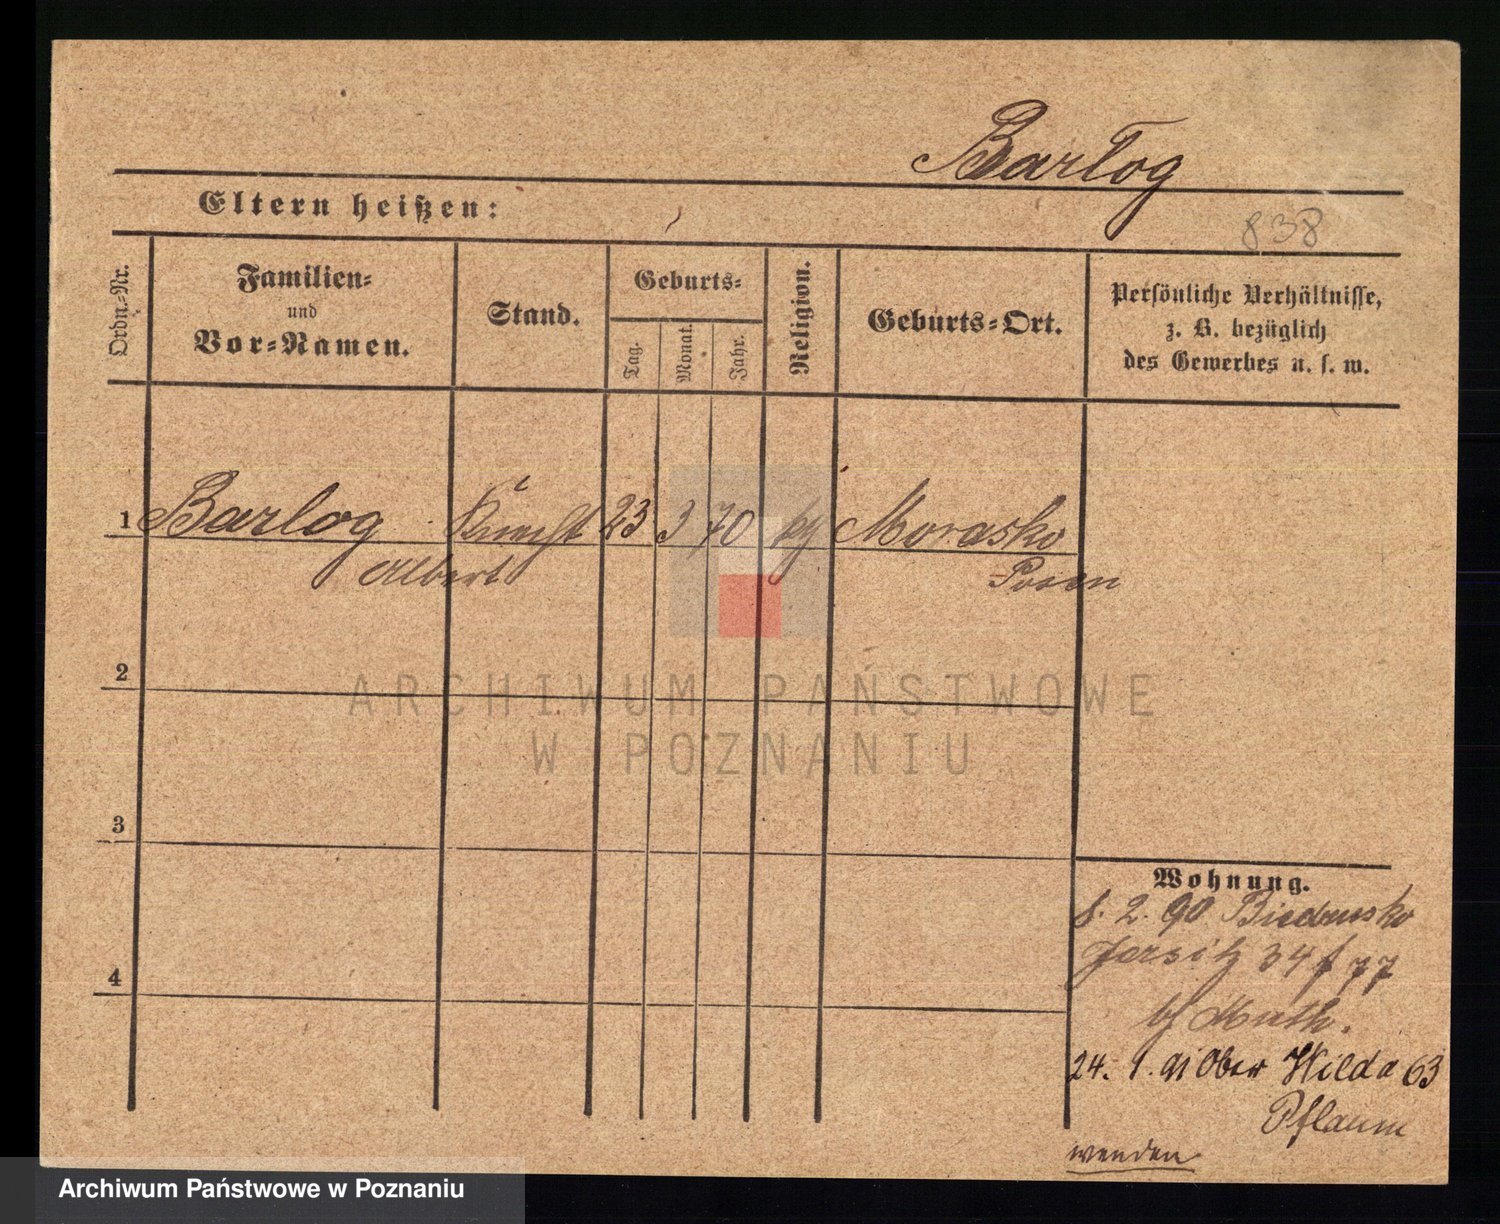 Barlog
Eltern heißen:
838
Ordn.=Nr.
Familien=
und
Vor=Namen.
Stand.
Geburts=
Tag.
Monat.
Jahr.
Religion.
Geburts=Ort.
Persönliche Verhältnisse,
z. B. bezüglich
des Gewerbes u. s. w.
1 Barlog Knecht 23 3 70 kg Morasko
Albert Posen
2
ARCHIWUM PAŃSTWOWE
W POZNANIU
3
Wohnung.
8. 2. 90 Biedrusko
Jersitz 34 f 77
4
b/ Muth.
24. 1. 91 Ober Wilda 63
Pflaum
wenden
Archiwum Państwowe w Poznaniu